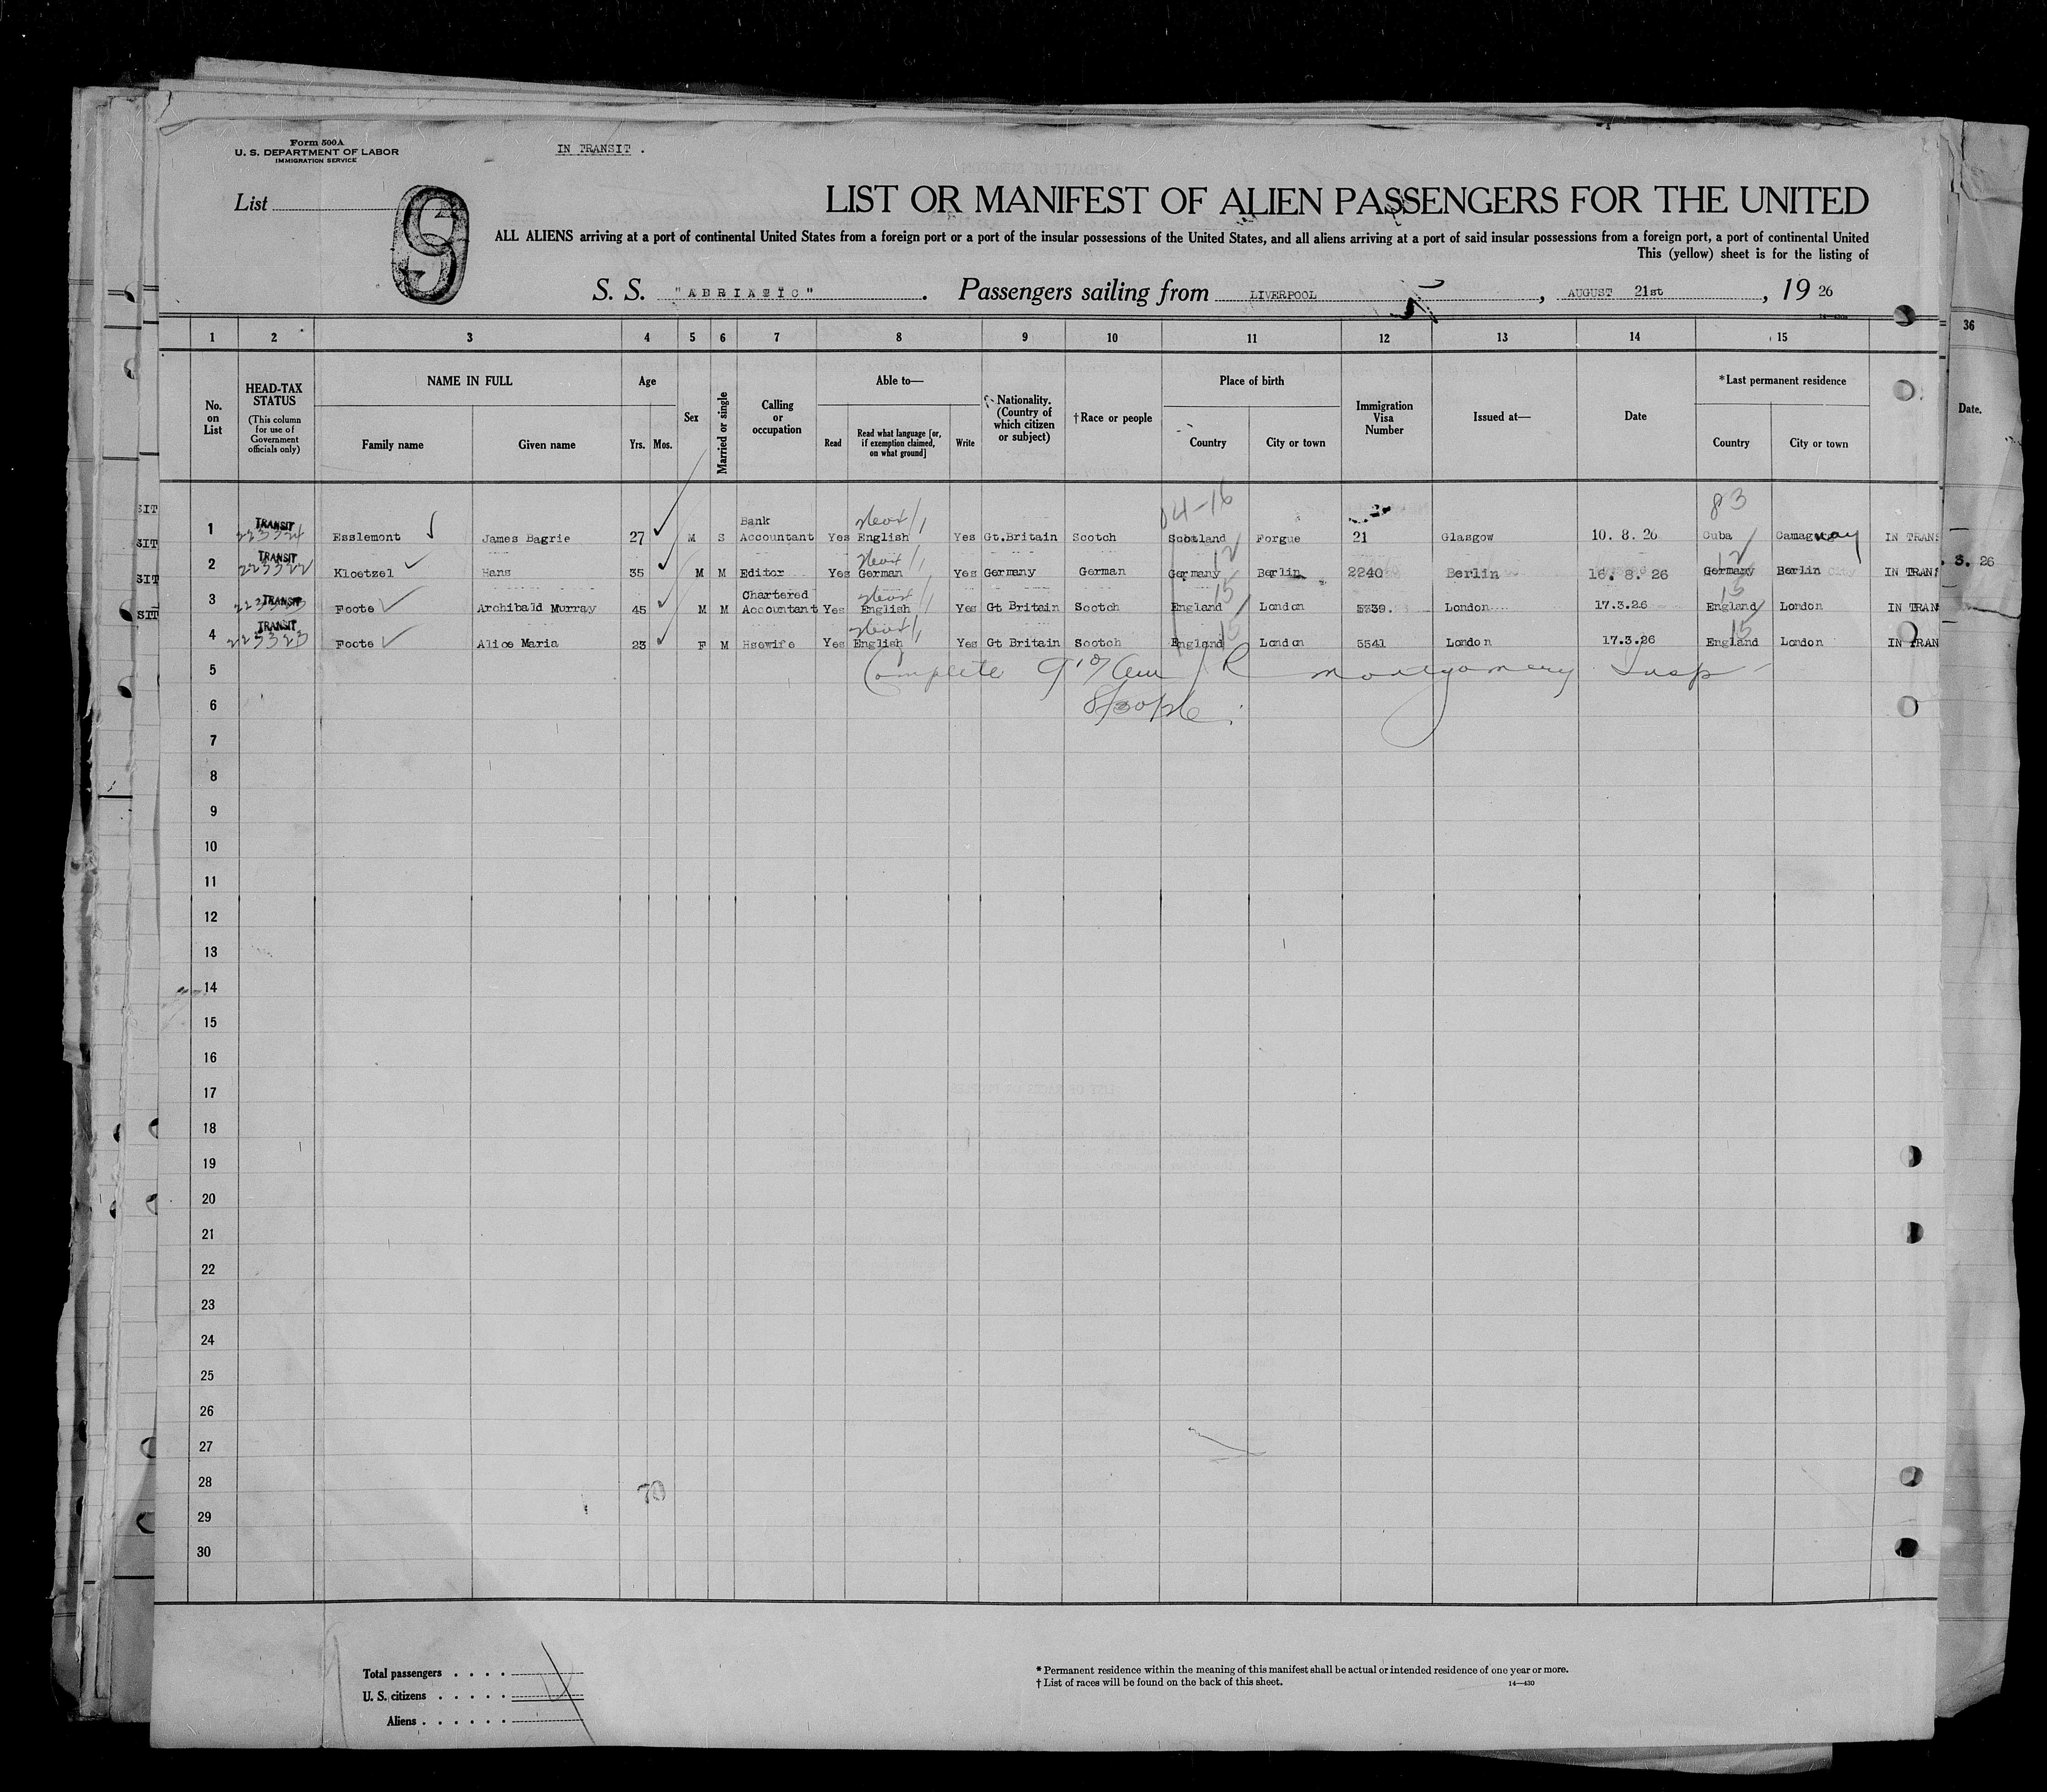 Form 500A
U. S. DEPARTMENT OF LABOR
IMMIGRATION SERVICE
IN TRANSIT .
List
LIST OR MANIFEST OF ALIEN PASSENGERS FOR THE UNITED
ALL ALIENS arriving at a port of continental United States from a foreign port or a port of the insular possessions of the United States, and all aliens arriving at a port of said insular possessions from a foreign port, a port of continental United
This (yellow) sheet is for the listing of
S. S. "ADRIATIC" . Passengers sailing from LIVERPOOL , AUGUST 21st , 19 26
1 2 3 4 5 6 7 8 9 10 11 12 13 14 15 36
No. on List
HEAD-TAX STATUS
(This column for use of Government officials only)
NAME IN FULL
Family name Given name
Age
Yrs. Mos.
Sex
Married or single
Calling or occupation
Able to—
Read Read what language [or, if exemption claimed, on what ground] Write
Nationality. (Country of which citizen or subject)
†Race or people
Place of birth
Country City or town
Immigration Visa Number
Issued at—
Date
*Last permanent residence
Country City or town
Date.
04-16 83
1 TRANSIT 223324 Esslemont James Bagrie 27 M S Bank Accountant Yes English Yes Gt.Britain Scotch Scotland Forgue 21 Glasgow 10. 8. 26 Cuba Camaguay IN TRANS
2 TRANSIT 223322 Kloetzel Hans 35 M M Editor Yes German Yes Germany German Germany Berlin 2240 Berlin 16. 8. 26 Germany Berlin IN TRAN
3 TRANSIT Foote Archibald Murray 45 M M Chartered Accountant Yes English Yes Gt Britain Scotch England London 5539. London 17.3.26 England London IN TRAN
4 TRANSIT 223323 Foote Alice Maria 23 F M Hsewife Yes English Yes Gt Britain Scotch England London 5541 London 17.3.26 England London IN TRAN
5 Complete R Montgomery Insp
6 8/30/26
7
8
9
10
11
12
13
14
15
16
17
18
19
20
21
22
23
24
25
26
27
28
29
30
70
Total passengers . . . .
U. S. citizens . . . . .
Aliens . . . . . .
* Permanent residence within the meaning of this manifest shall be actual or intended residence of one year or more.
† List of races will be found on the back of this sheet.
14—430